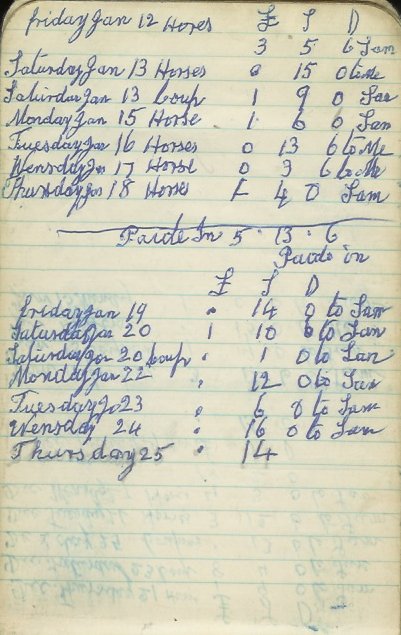 friday Jan 12 Hores £ S D
3 5 6 Sam
Saturday Jan 13 Horses 0 15 0 to Me
Saturday Jan 13 Coup 1 9 0 Sam
Monday Jan 15 Horse 1 6 0 Sam
Tuesday Jan 16 Horses 0 13 6 to Me
Wensday Jan 17 Horse 0 3 6 to Me
Thursday Jan 18 Horses £ 4 0 Sam
Paide In 5 . 13 . 6
Paide in
£ S D
friday Jan 19 " 14 0 to Sam
Saturday Jan 20 1 10 6 to Sam
Saturday Jan 20 Coup . 1 0 to Sam
Monday Jan 22 , 12 0 to Sam
Tuesday Ja 23 , 6 0 to Sam
Wensday 24 , 16 0 to Sam
Thursday 25 . 14